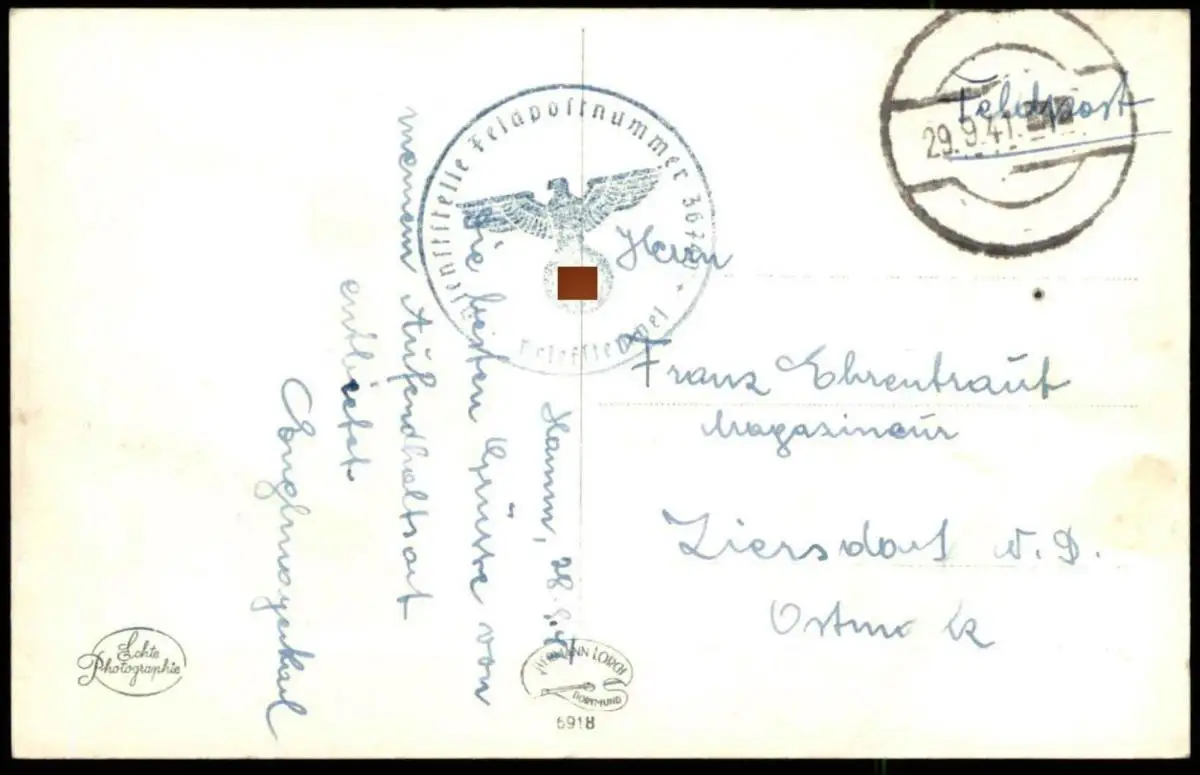 Feldpost
29.9.41.
Dienststelle Feldpostnummer
Briefstempel
Hamm, 28.9.41
Die besten Grüße von
meinem Aufendhaltsort
entbietet
Herrn
Franz Ehrentraut
Magazineur
Ziersdorf N.D.
Ostmark
Echte
Photographie
HERMANN LORCH
DORTMUND
6918